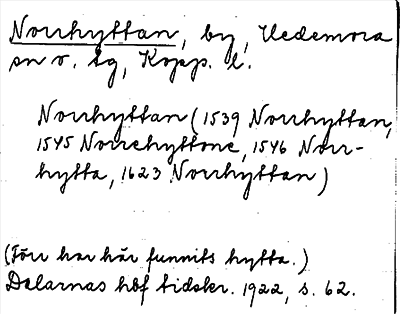 Norrhyttan, by, Hedemora
sn o. tg, Kopp. l.
Norrhyttan (1539 Norrhyttan,
1545 Norrehyttone, 1546 Norr-
hytta, 1623 Norrhyttan)
(Förr har här funnits hytta.)
Dalarnas hbf tidskr. 1922, s. 62.